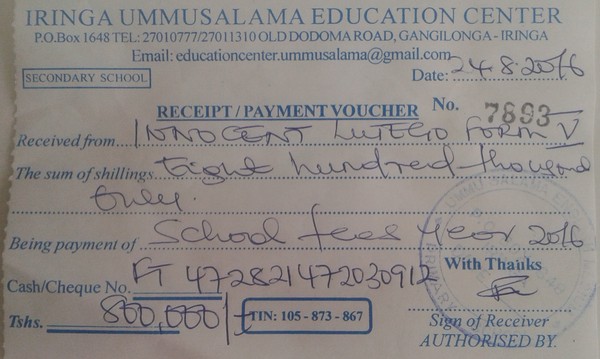 IRINGA UMMUSALAMA EDUCATION CENTER
P.O.Box 1648 TEL: 27010777/27011310 OLD DODOMA ROAD, GANGILONGA - IRINGA
Email: educationcenter.ummusalama@gmail.com
SECONDARY SCHOOL
Date: 24.8.2016
RECEIPT / PAYMENT VOUCHER No. 7893
Received from INNOCENT FORM V
The sum of shillings Eight hundred thousand
only.
Being payment of School fees year 2016
With Thanks
Cash/Cheque No. FT 472821472030912
Tshs. 800,000/= TIN: 105 - 873 - 867
Sign of Receiver
AUTHORISED BY.